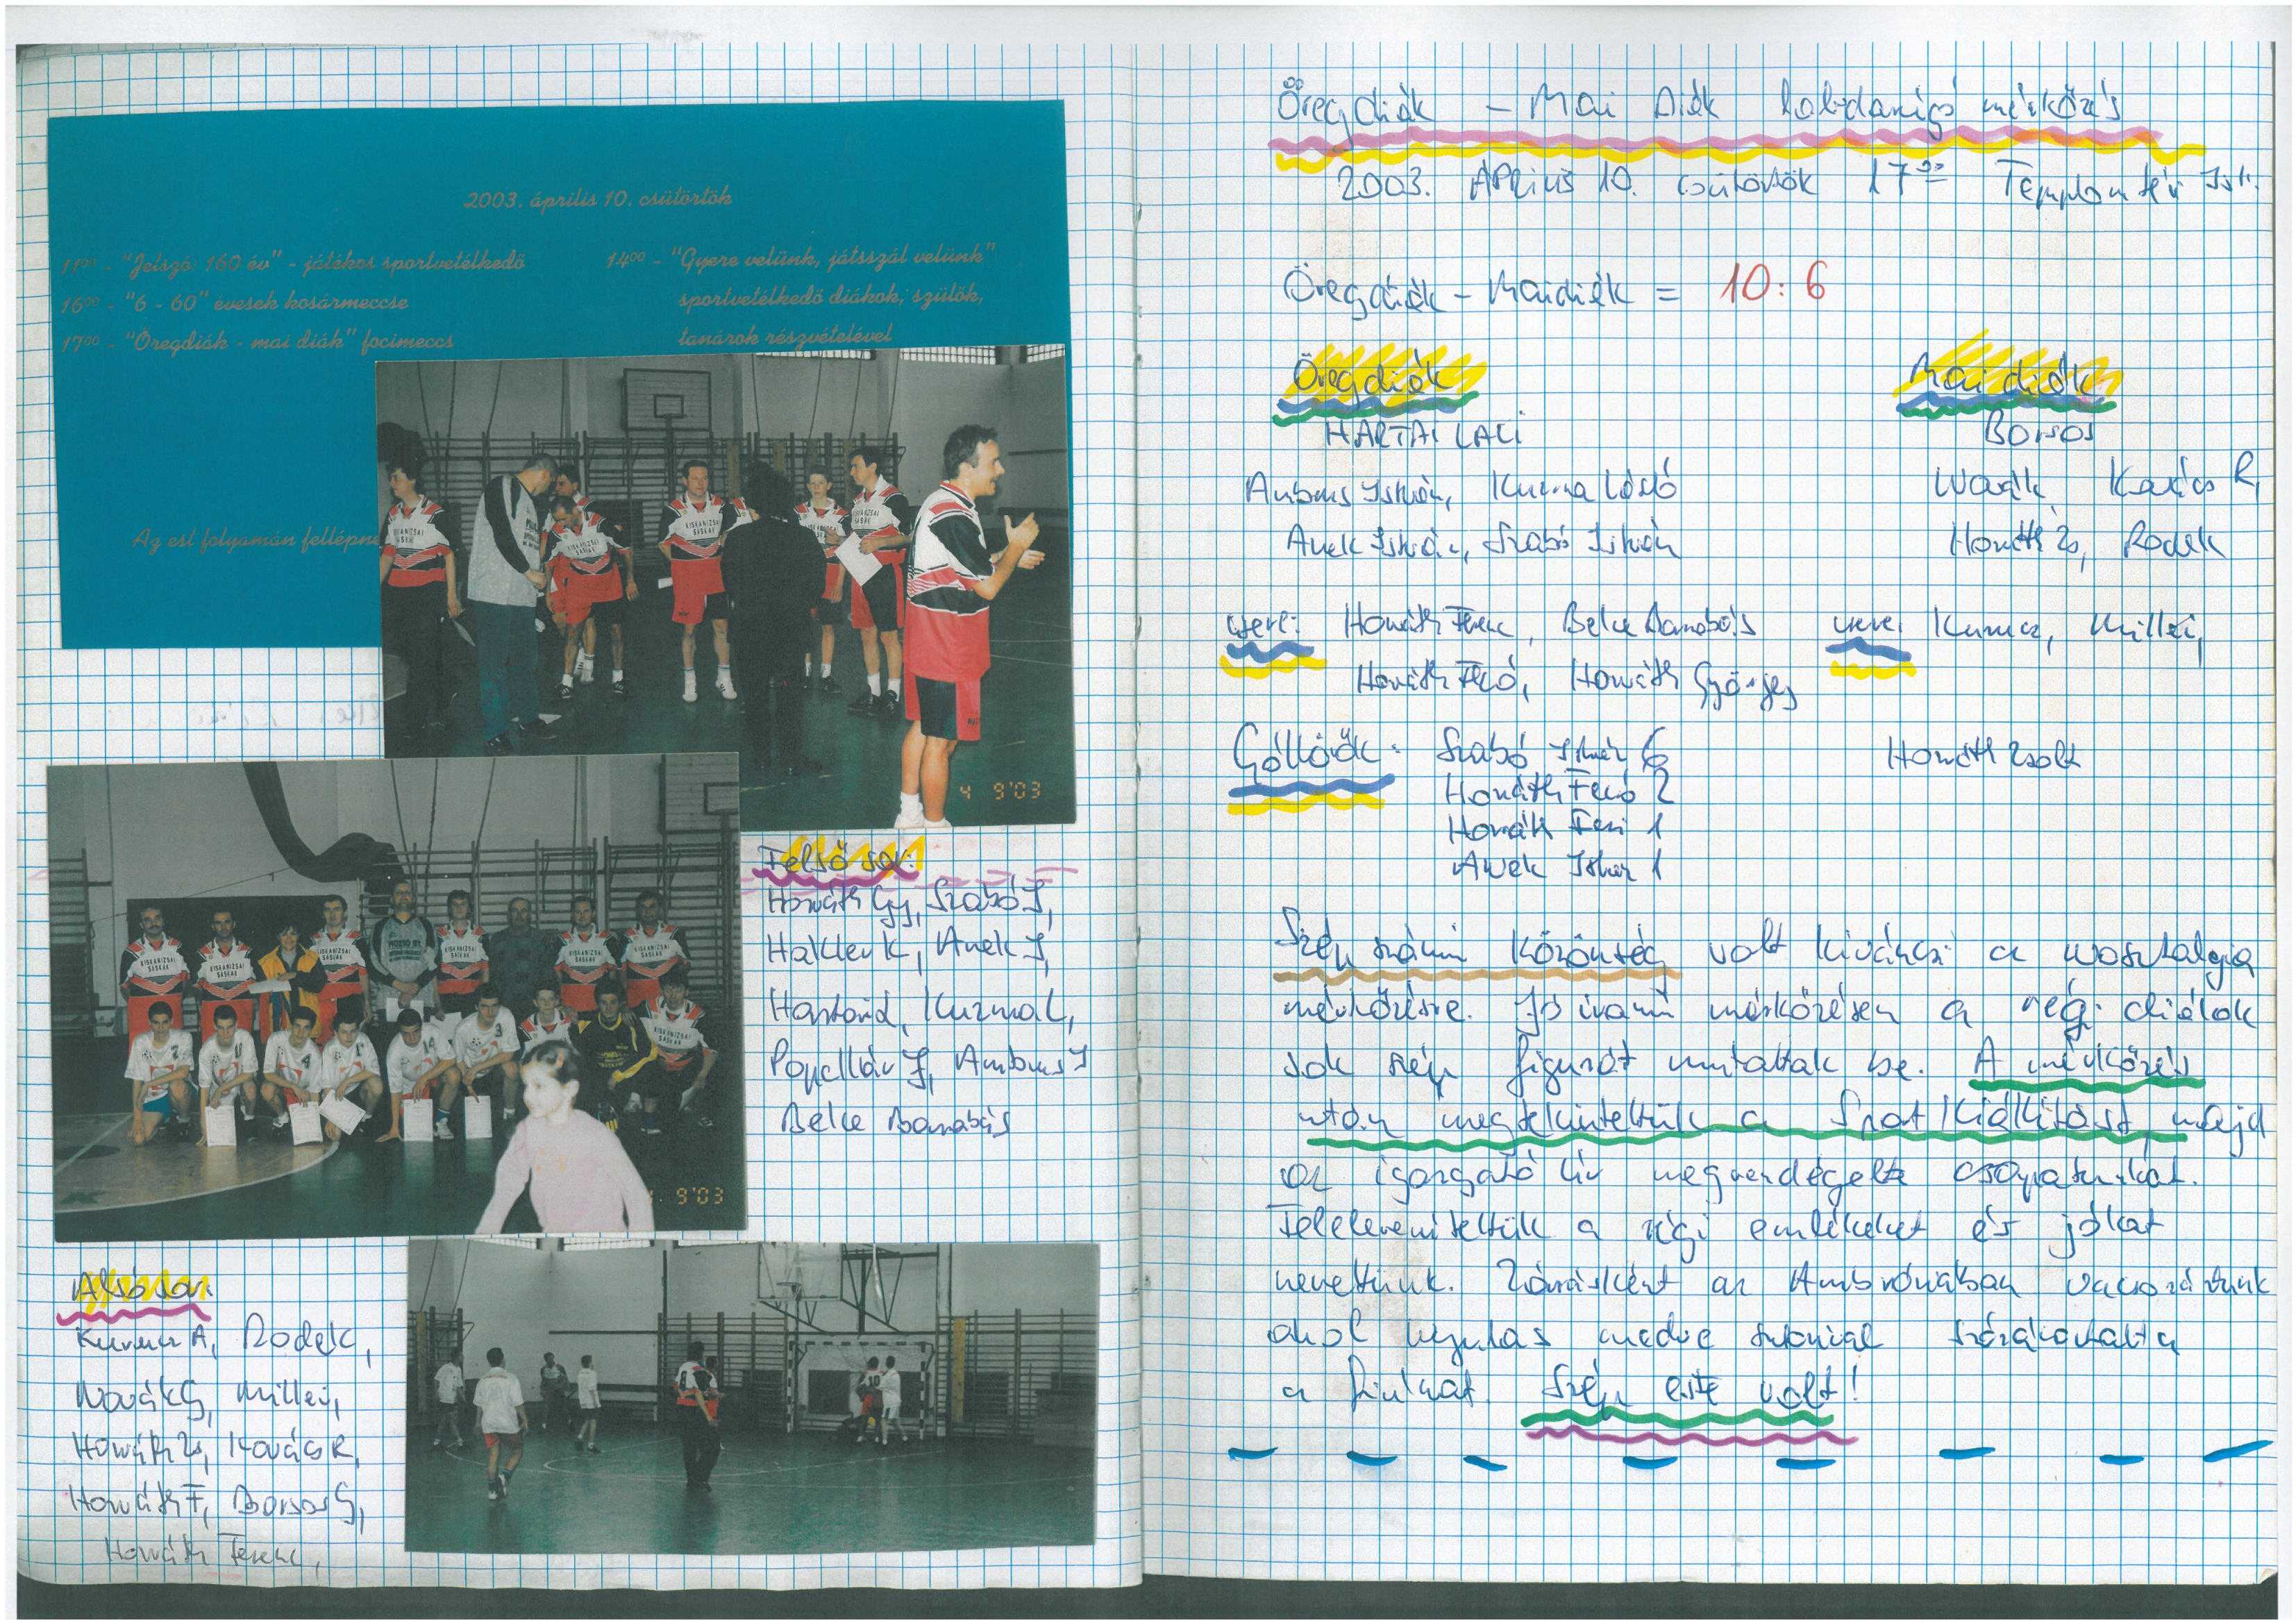 2003. április 10. csütörtök
11⁰⁰ - "Jelszó: 160 év" - játékos sportvetélkedő
16⁰⁰ - "6 - 60" évesek kosármeccse
17⁰⁰ - "Öregdiák - mai diák" focimeccs
14⁰⁰ - "Gyere velünk, játsszál velünk"
sportvetélkedő diákok, szülők,
tanárok részvételével
Az est folyamán fellépne
KISKANIZSAI
SÁSKÁK
4 9'03
Felső sor:
Horváth Gy, Szabó I,
Hakler K, Anek I,
Hartai L, Kuzma L,
Popellár I, Ambrus I
Belce Barnabás
9'03
Alsó sor:
Kurucz A, Rodek,
Novák G, Millei,
Horváth Zs, Kovács R,
Horváth F, Borsos G,
Horváth Ferenc,
Öregdiák - Mai Diák labdarúgó mérkőzés
2003. ÁPRILIS 10. csütörtök 17⁰⁰ Templom tér Isk.
Öregdiák - Maidiák = 10:6
Öregdiák
HARTAI LACI
Ambrus István, Kuzma László
Anek István, Szabó István
csere: Horváth Ferenc, Belce Barnabás
Horváth Fecó, Horváth György
Mai diák
BORSOS
Novák Kovács R,
Horváth Zs, Rodek
csere: Kurucz, Millei,
Góllövők: Szabó István 6
Horváth Fecó 2
Horváth Feri 1
Anek István 1
Horváth Zsolt
Szép számú közönség volt kiváncsi a nosztalgia
mérkőzésre. Jó iramú mérkőzésen a régi diákok
sok szép figurát mutattak be. A mérkőzés
után megtekintettük a Sport kiállítást, majd
az igazgató úr megvendégelte csapatunkat.
Felelevenítettük a régi emlékeket és jókat
nevettünk. Zárásként az Ambróziában vacsoráztunk
ahol medve szórakoztatta
a fiúkat. Szép este volt!